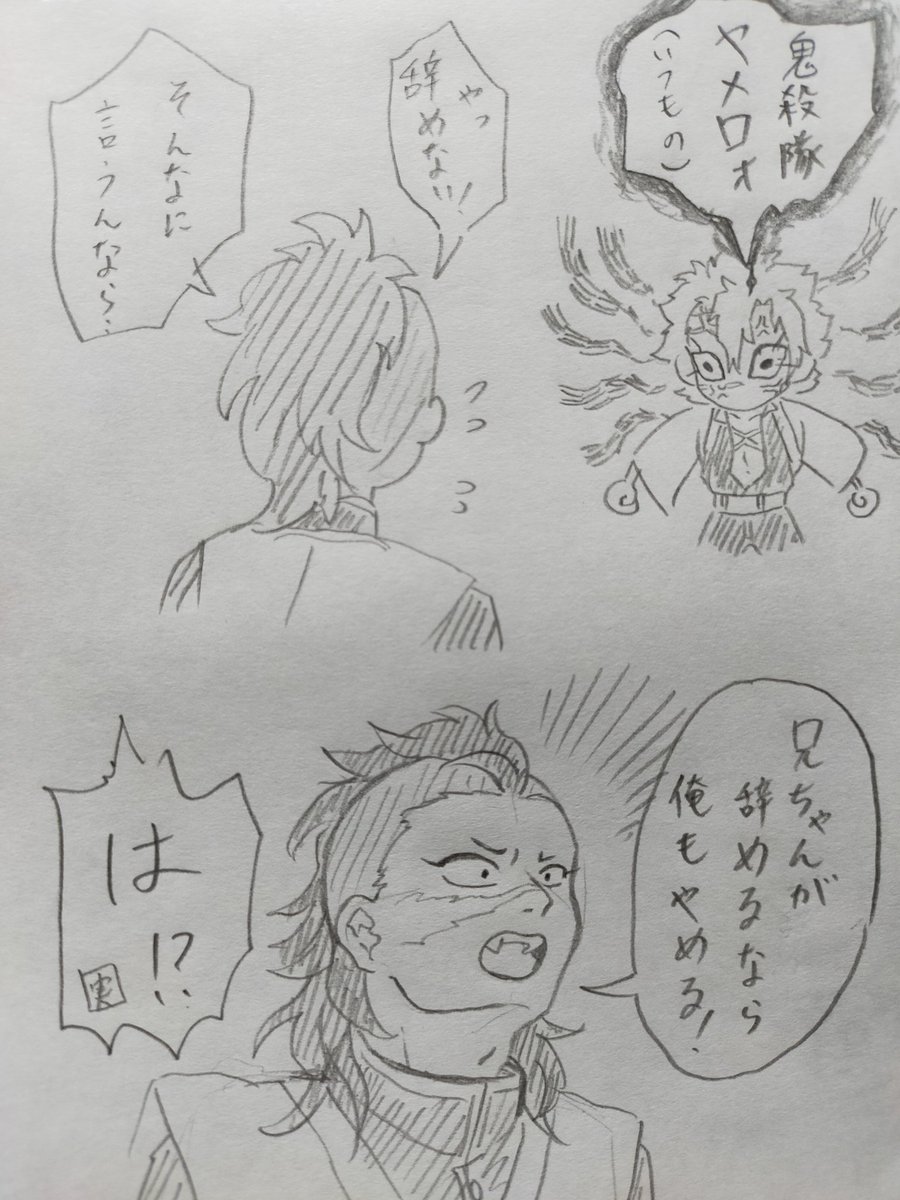 鬼殺隊
ヤメロォ
(いつもの)
やっ
辞めない!
そんなに
言うんなら…
兄ちゃんが
辞めるなら
俺もやめる!
は!?
実